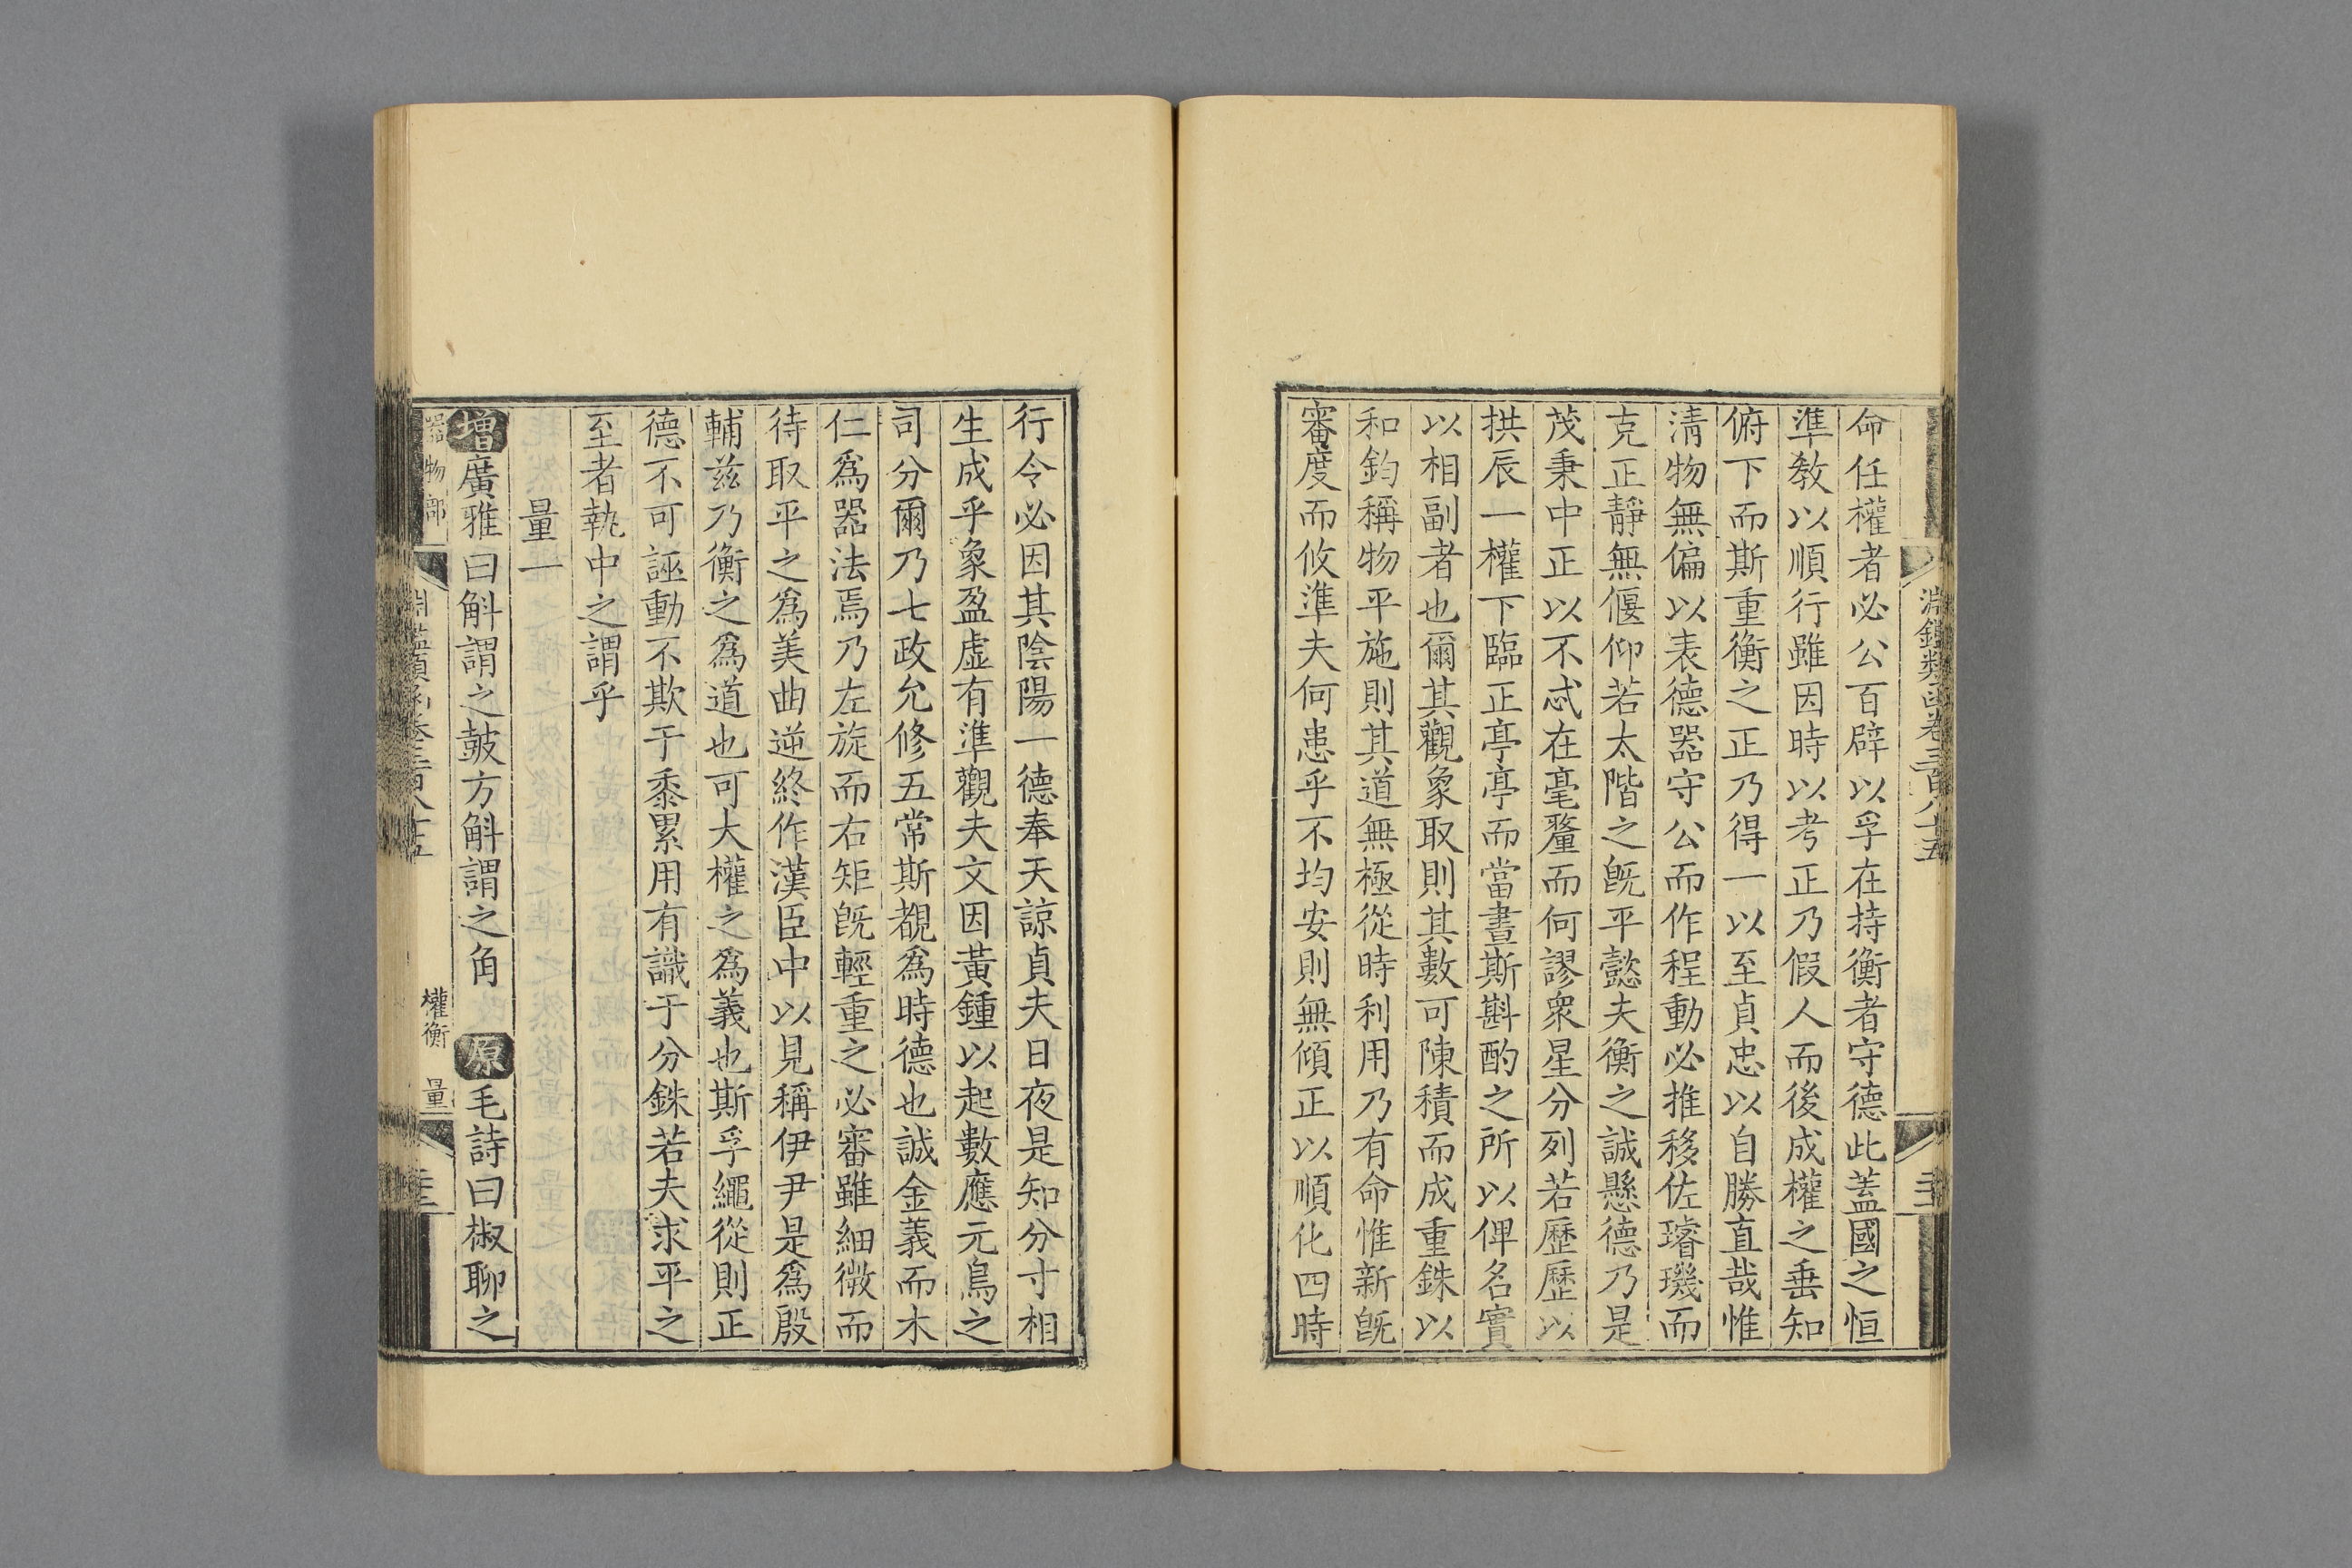 淵鑑類函卷三百八十五
命任權者必公百辟以孚在持衡者守德此蓋國之恒
準敎以順行雖因時以考正乃假人而後成權之垂知
俯下而斯重衡之正乃得一以至貞忠以自勝直哉惟
淸物無偏以表德器守公而作程動必推移佐璿璣而
克正靜無偃仰若太階之旣平懿夫衡之誠懸德乃是
茂秉中正以不忒在毫釐而何謬衆星分列若歷歷以
拱辰一權下臨正亭亭而當晝斯斟酌之所以俾名實
以相副者也爾其觀象取則其數可陳積而成重銖以
和鈞稱物平施則其道無極從時利用乃有命惟新旣
審度而攸準夫何患乎不均安則無傾正以順化四時
行令必因其陰陽一德奉天諒貞夫日夜是知分寸相
生成乎象盈虛有準觀夫文因黃鍾以起數應元鳥之
司分爾乃七政允修五常斯覩爲時德也誠金義而木
仁爲器法焉乃左旋而右矩旣輕重之必審雖細微而
待取平之爲美曲逆終作漢臣中以見稱伊尹是爲殷
輔兹乃衡之爲道也可大權之爲義也斯孚繩從則正
德不可誣動不欺于黍累用有識于分銖若夫求平之
至者執中之謂乎
量一
增廣雅曰斛謂之鼓方斛謂之角 原毛詩曰椒聊之
器物部
淵鑑類函卷三百八十五
權衡 量